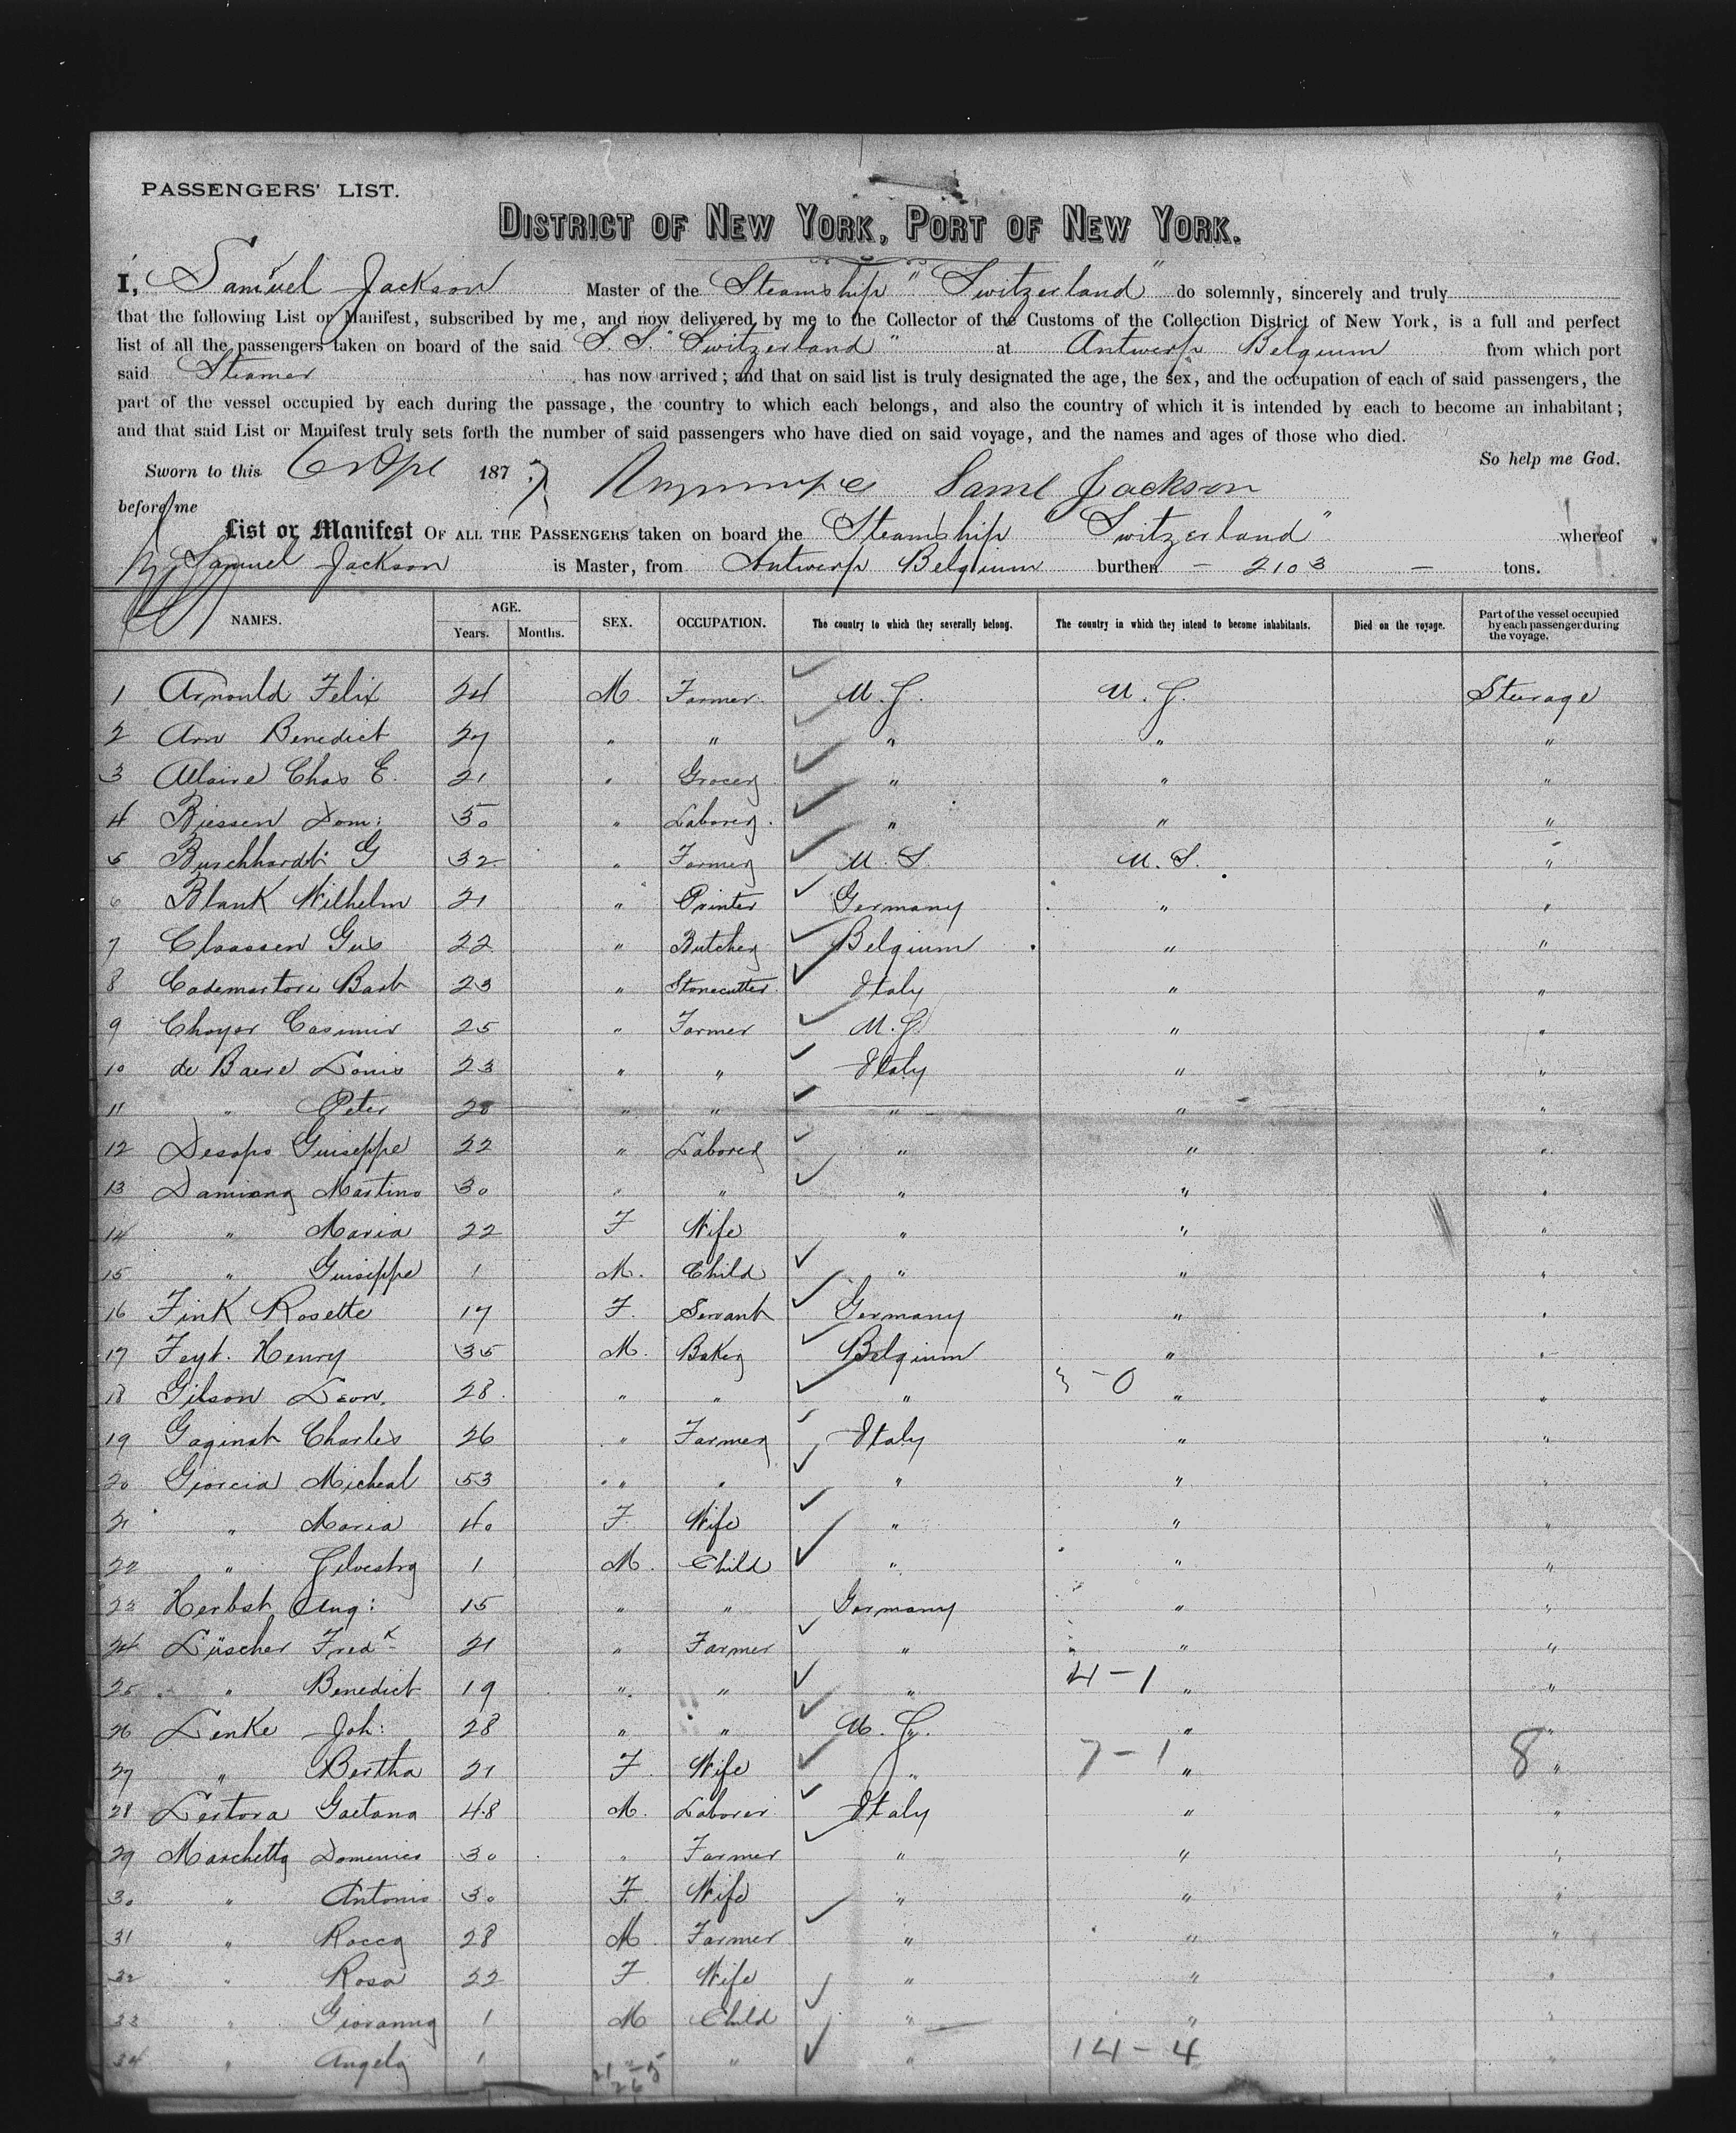 PASSENGERS' LIST.
DISTRICT OF NEW YORK, PORT OF NEW YORK.
I, Samuel Jackson Master of the Steamship "Switzerland" do solemnly, sincerely and truly
that the following List or Manifest, subscribed by me, and now delivered by me to the Collector of the Customs of the Collection District of New York, is a full and perfect
list of all the passengers taken on board of the said S.S. "Switzerland" at Antwerp Belgium from which port
said Steamer has now arrived; and that on said list is truly designated the age, the sex, and the occupation of each of said passengers, the
part of the vessel occupied by each during the passage, the country to which each belongs, and also the country of which it is intended by each to become an inhabitant;
and that said List or Manifest truly sets forth the number of said passengers who have died on said voyage, and the names and ages of those who died.
So help me God.
Sworn to this 6 Apl 1877 Saml Jackson
before me
List or Manifest OF ALL THE PASSENGERS taken on board the Steamship "Switzerland" whereof
Samuel Jackson is Master, from Antwerp Belgium burthen - 2103 - tons.
NAMES. AGE. Years. Months. SEX. OCCUPATION. The country to which they severally belong. The country in which they intend to become inhabitants. Died on the voyage. Part of the vessel occupied by each passenger during the voyage.
1 Arnould Felix 24 M. Farmer U.S. U.S. Sturage
2 Arn Benedict 27 " " " " "
3 Allaire Chas E. 21 " Grocer " " "
4 Biessen Dom: 50 " Laborer " " "
5 Burchhardt G 32 " Farmer U.S. U.S. "
6 Blank Wilhelm 21 " Printer Germany " "
7 Claassen Gus 22 " Butcher Belgium " "
8 Cademartori Bart 23 " Stonecutter Italy " "
9 Choyer Casimir 25 " Farmer U.S. " "
10 de Baere Louis 23 " " Italy " "
11 " Peter 20 " " " " "
12 Desopo Guiseppe 22 " Laborer " " "
13 Damiano Martino 30 " " " " "
14 " Maria 22 F Wife " " "
15 " Guiseppe 1 M. Child " " "
16 Fink Rosette 17 F. Servant Germany " "
17 Feyt. Henry 35 M. Baker Belgium " "
18 Gilson Leon. 28. " " " 3-0 " "
19 Gaginat Charles 26 " Farmer Italy " "
20 Giorcia Micheal 53 " " " " "
21 " Maria 40 F. Wife " " "
22 " Silvestro 1 M. Child " " "
23 Herbst Aug: 15 " " Germany " "
24 Lüscher Fredk 21 " Farmer " " "
25 " Benedict 19 " " " 4-1 " "
26 Lenke Joh: 28 " " U.S. " "
27 " Bertha 21 F. Wife " 7-1 " 8 "
28 Lertora Gaetana 48 M. Laborer Italy " "
29 Marchetto Domenico 30 " Farmer " " "
30 " Antonio 30 F. Wife " " "
31 " Rocco 28 M Farmer " " "
32 " Rosa 22 F. Wife " " "
33 " Giovanni 1 M Child " " "
34 " Angelo 1 " " " 14-4 "